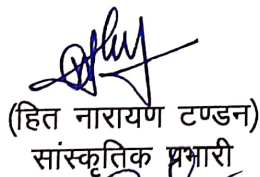 (हित नारायण टण्डन)
सांस्कृतिक प्रभारी